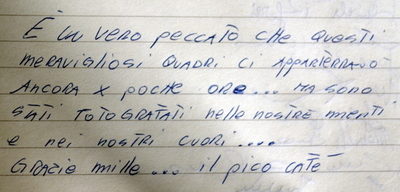 È un vero peccato che questi
meravigliosi quadri ci apparterrano
ancora x poche ore... ma sono
stati fotografati nelle nostre menti
e nei nostri cuori....
Grazie mille... il pico